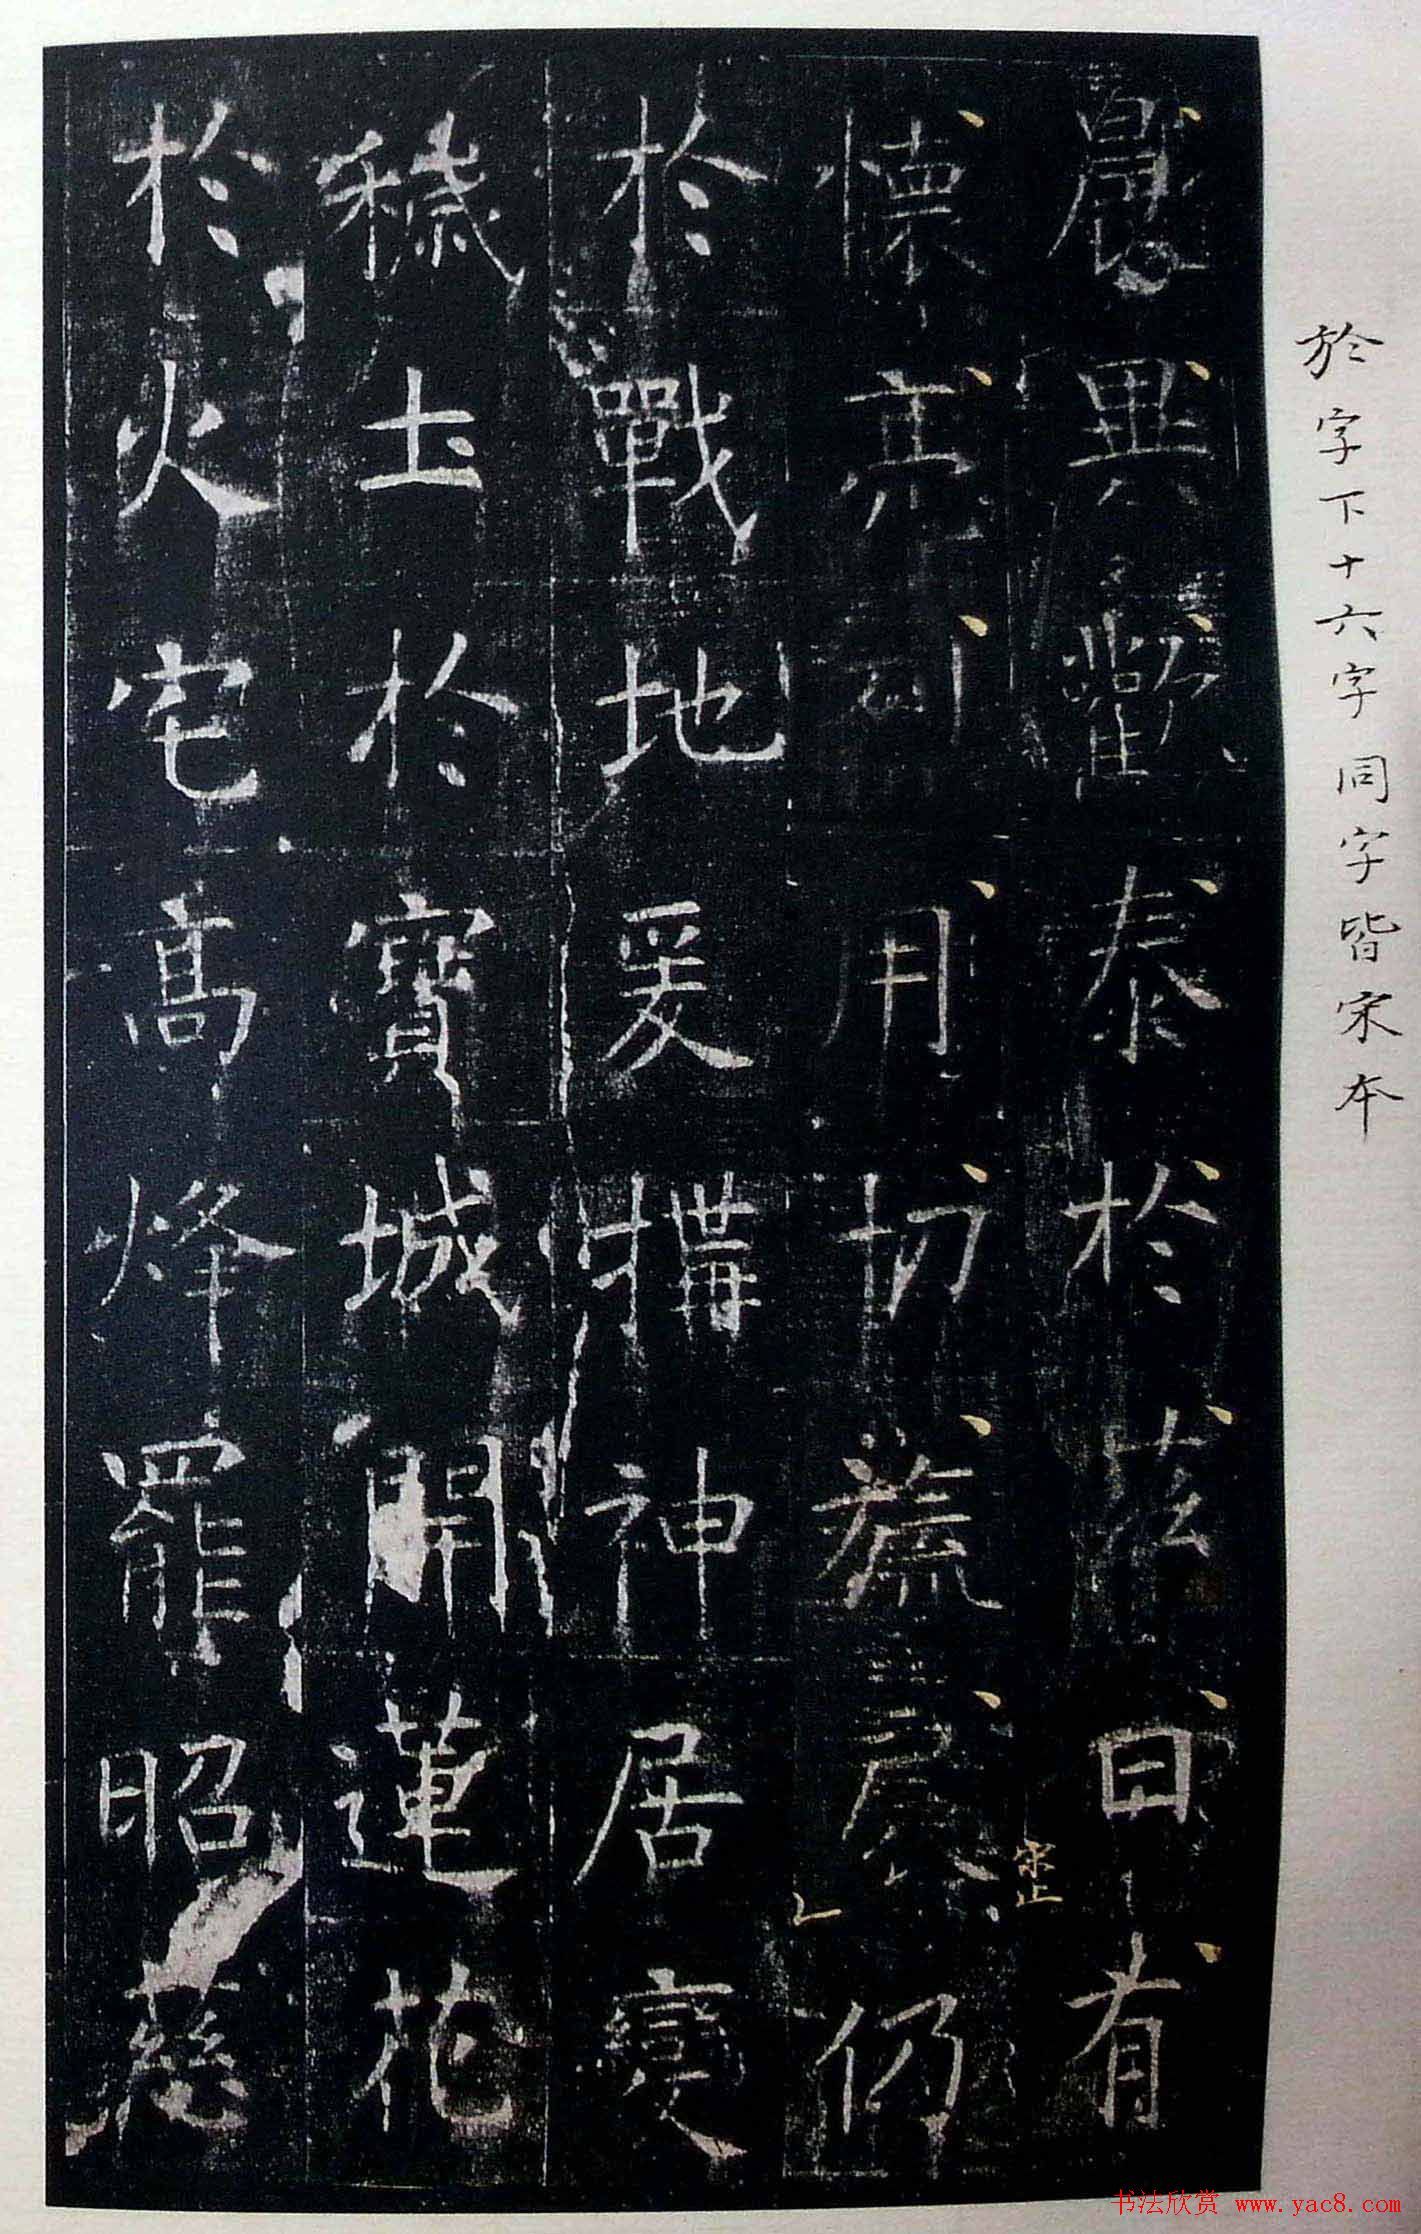 於字下十六字同字皆宋本
晨異歡泰於茲日有
懷亮烈用切旒扆仍
宋止
於戰地爰搆神居變
穢土於寶城開蓮花
於火宅高烽罷昭慈
书法欣赏 www.yac8.com